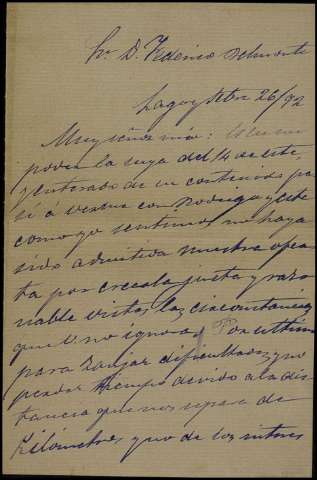 Sr. D. Federico Delmonte
Lagos Febro 26/92
Muy señor mío: Obra en mi
poder la suya del 14 de este,
y enterado de su contenido pa
sé á verme con Rodriguez y este
como yo sentimos no haya
sido admitida nuestra ofer
ta por creerla justa y razo
nable vistas las circunstancias
que V. no ignora. Por ultimo
para zanjar dificultades y no
perder tiempo devido a la dis
tancia que nos separa de
Kilómetros, y no de los interes